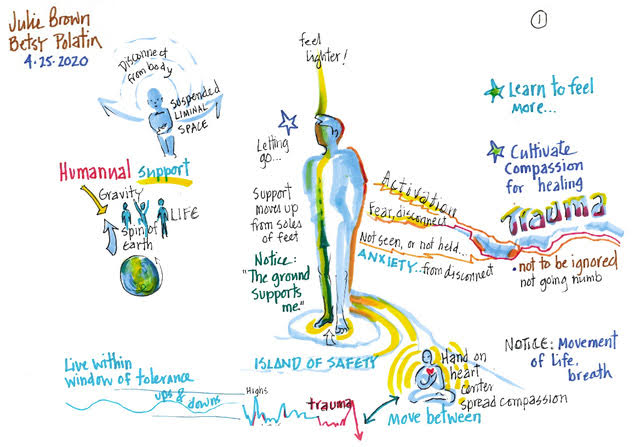 Julie Brown
Betsy Polatin
4·25·2020
Disconnect
from body
SUSPENDED
LIMINAL
SPACE
Humanual support
Gravity
LIFE
Spin of
earth
feel
lighter!
Letting
go...
Support
moves up
from soles
of feet
Notice:
"The ground
supports
me."
ISLAND OF SAFETY
1
Learn to feel
more...
Cultivate
Compassion
for healing
Trauma
Activation
Fear, disconnect
Not seen, or not held...
ANXIETY...from disconnect
• not to be ignored
not going numb
NOTICE: Movement
of Life,
breath
Hand on
heart
center
spread compassion
Move between
Live within
window of tolerance
ups & downs
Highs
trauma